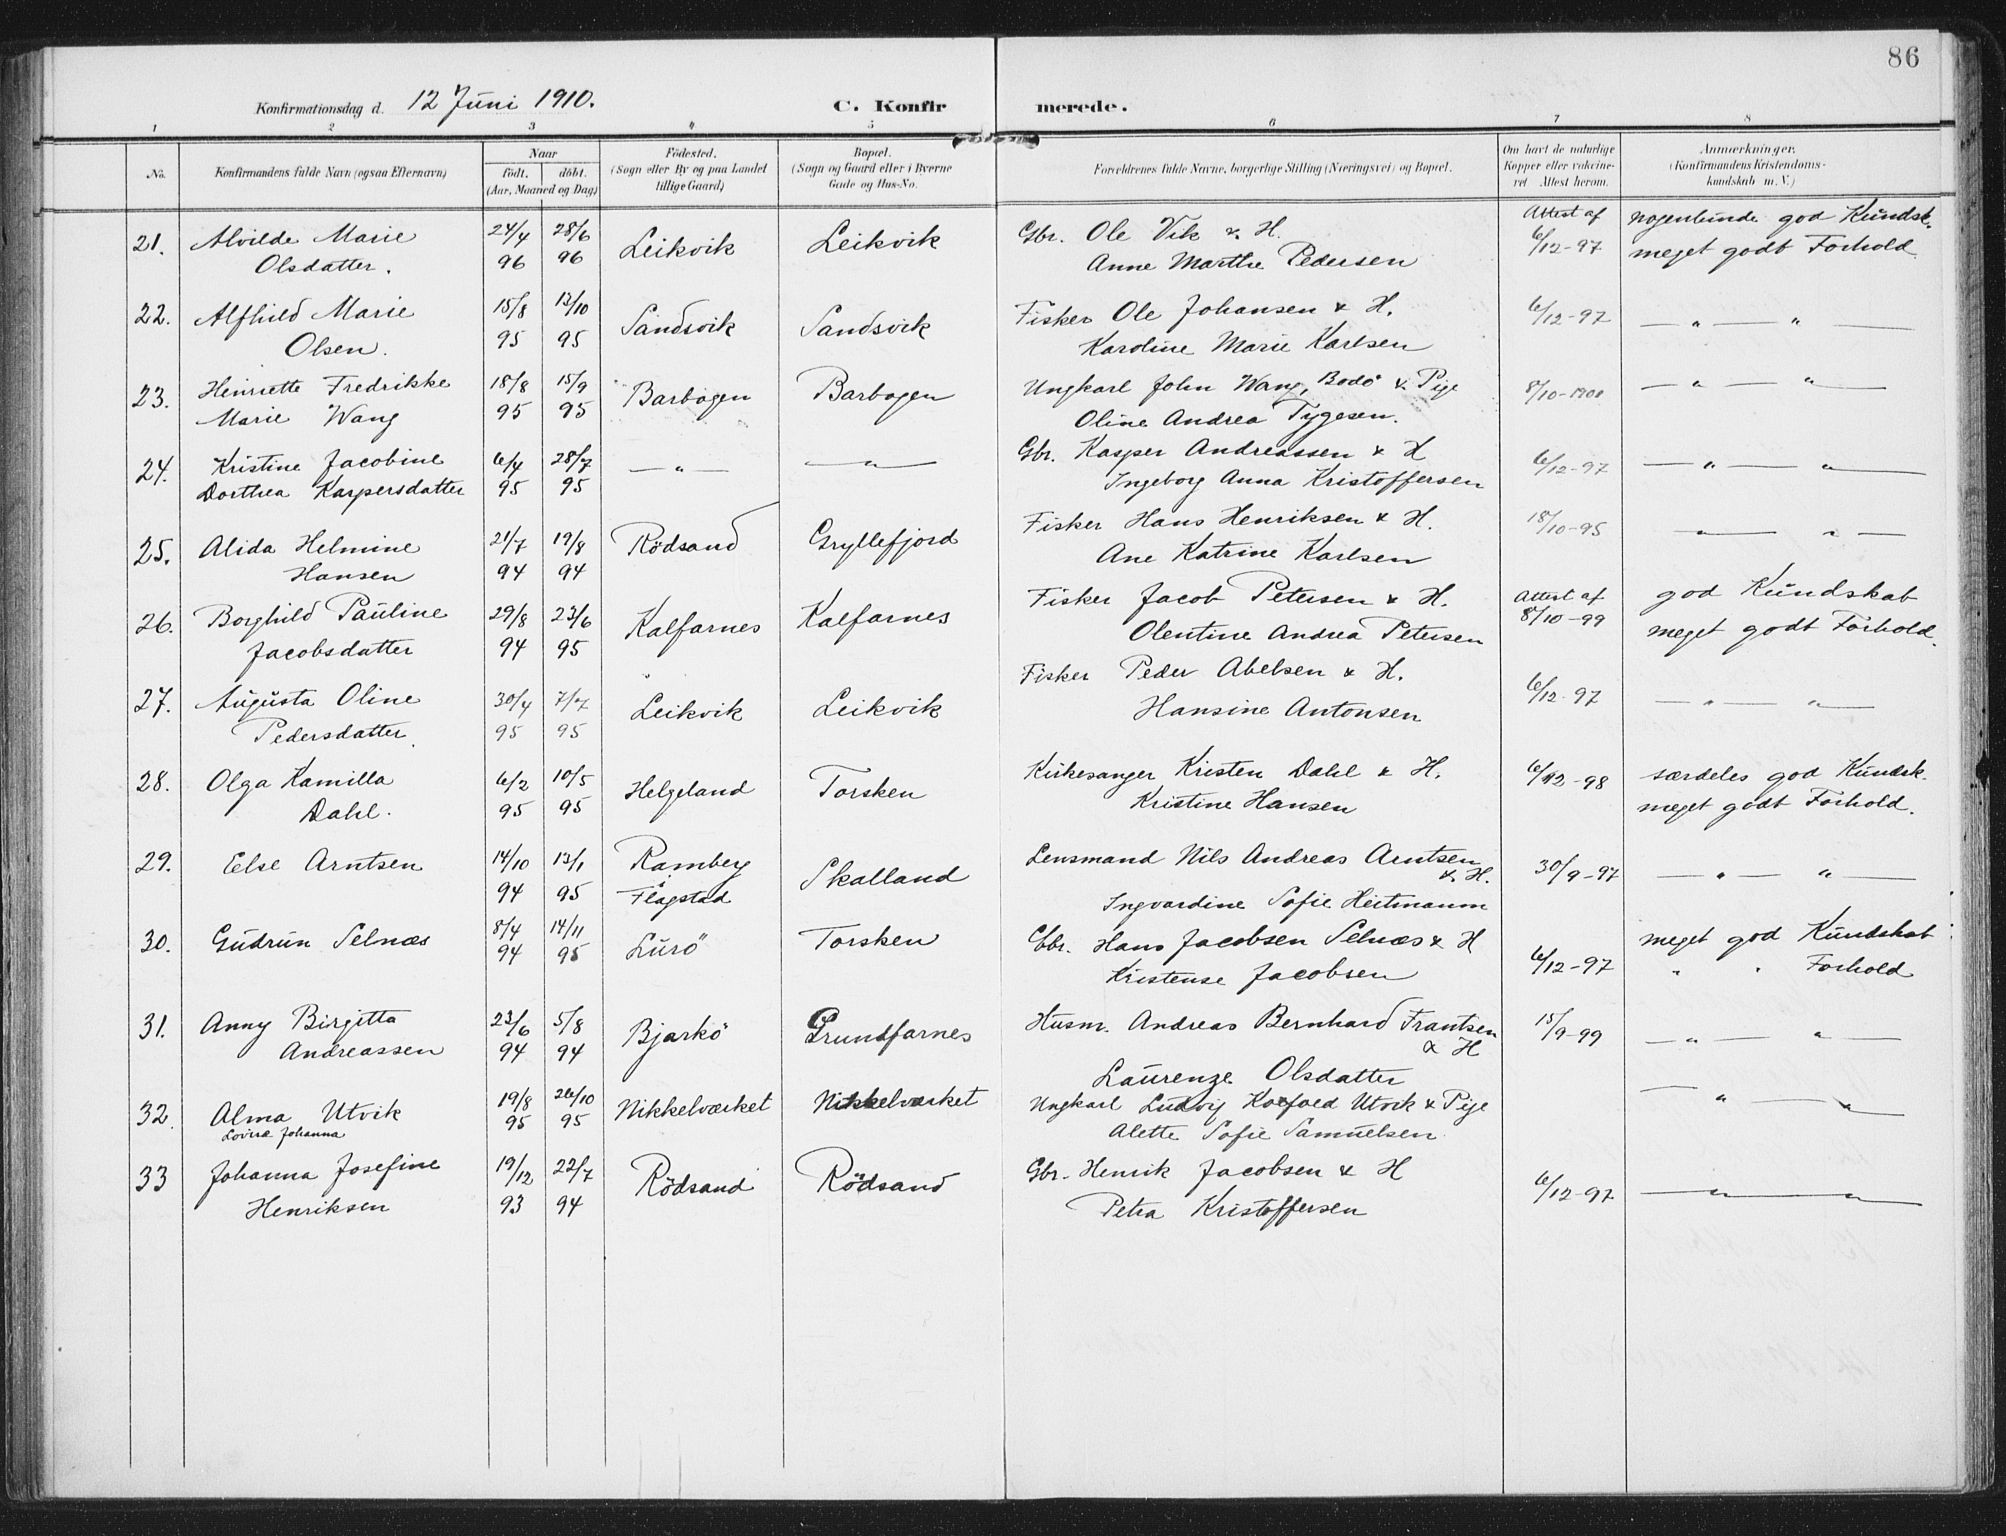 86
Konfirmationsdag d. 12 Juni 1910. C. Konfirmerede.
1 2 3 4 5 6 7 8
No. Konfirmandens fulde Navn (ogsaa Efternavn) Naar født. døbt. (Aar, Maaned og Dag) Fødested. (Sogn eller By og paa Landet tillige Gaard) Bopæl. (Sogn og Gaard eller i Byerne Gade og Hus-No. Forældrenes fulde Navne, borgerlige Stilling (Næringsvei) og Bopæl. Om havt de naturlige Kopper eller vaccineret Attest herom. Anmærkninger. (Konfirmandens Kristendomskundskab m. V.)
21. Alvilde Marie 24/4 28/6 Leikvik Leikvik Gbr. Ole Vik & H. Attest af nogenlunde god Kundsk.
Olsdatter. 96 96 Anne Marthe Pedersen 6/12-97 meget godt Forhold
22. Alfhild Marie 15/8 13/10 Sandsvik Sandsvik Fisker Ole Johansen & H. 6/12-97 — " — " —
Olsen. 95 95 Karoline Marie Karlsen
23. Henriette Fredrikke 18/8 15/9 Barbogen Barbogen Ungkarl John Wang, Bodö & Pige 8/10-1900 — " — " —
Marie Wang 95 95 Oline Andrea Tygesen.
24. Kristine Jacobine 6/4 28/7 — " — — " — Gbr. Kasper Andreassen & H 6/12-97 — " — " —
Dorthea Kaspersdatter 95 95 Ingeborg Anna Kristoffersen
25. Alida Helmine 21/7 19/8 Rödsand Gryllefjord Fisker Hans Henriksen & H. 18/10-95 — " — " —
Hansen 94 94 Ane Katrine Karlsen
26. Borghild Pauline 29/8 23/6 Kalfarnes Kalfarnes Fisker Jacob Petersen & H. Attest af god Kundskab
Jacobsdatter 94 95 Olentine Andrea Petersen 8/10-99 meget godt Forhold.
27. Augusta Oline 30/4 7/7 Leikvik Leikvik Fisker Peder Abelsen & H. 6/12-97 — " — " —
Pedersdatter 95 95 Hansine Antonsen
28. Olga Kamilla 6/2 10/5 Helgeland Torsken Kirkesanger Kristen Dahl & H. 6/12-98 særdeles god Kundsk.
Dahl. 95 95 Kristine Hansen meget godt Forhold.
29. Else Arntsen 14/10 13/1 Ramberg Skalland Lensmand Nils Andreas Arntsen & H. 30/9-97 — " — " —
94 95 Flagstad Ingvardine Sofie Heitmann
30. Gudrun Selnæs 8/4 14/11 Lurö Torsken Gbr. Hans Jacobsen Selnæs & H meget god Kundskab
94 95 Kristense Jacobsen 6/12-97 " " Forhold
31. Anny Birgitta 23/6 5/8 Bjarkö Grundfarnes Husm. Andreas Bernhard Frantsen & H 15/9-99 — " — " —
Andreassen 94 94 Laurenze Olsdatter
32. Alma Utvik 19/8 26/10 Nikkelværket Nikkelværket Ungkarl Ludvig Utvik & Pige — " — " —
Lovise Johanna 95 95 Alette Sofie Samuelsen
33 Johanna Josefine 19/12 22/7 Rödsand Rödsand Gbr. Henrik Jacobsen & H 6/12-97 — " — " —
Henriksen 93 94 Petra Kristoffersen